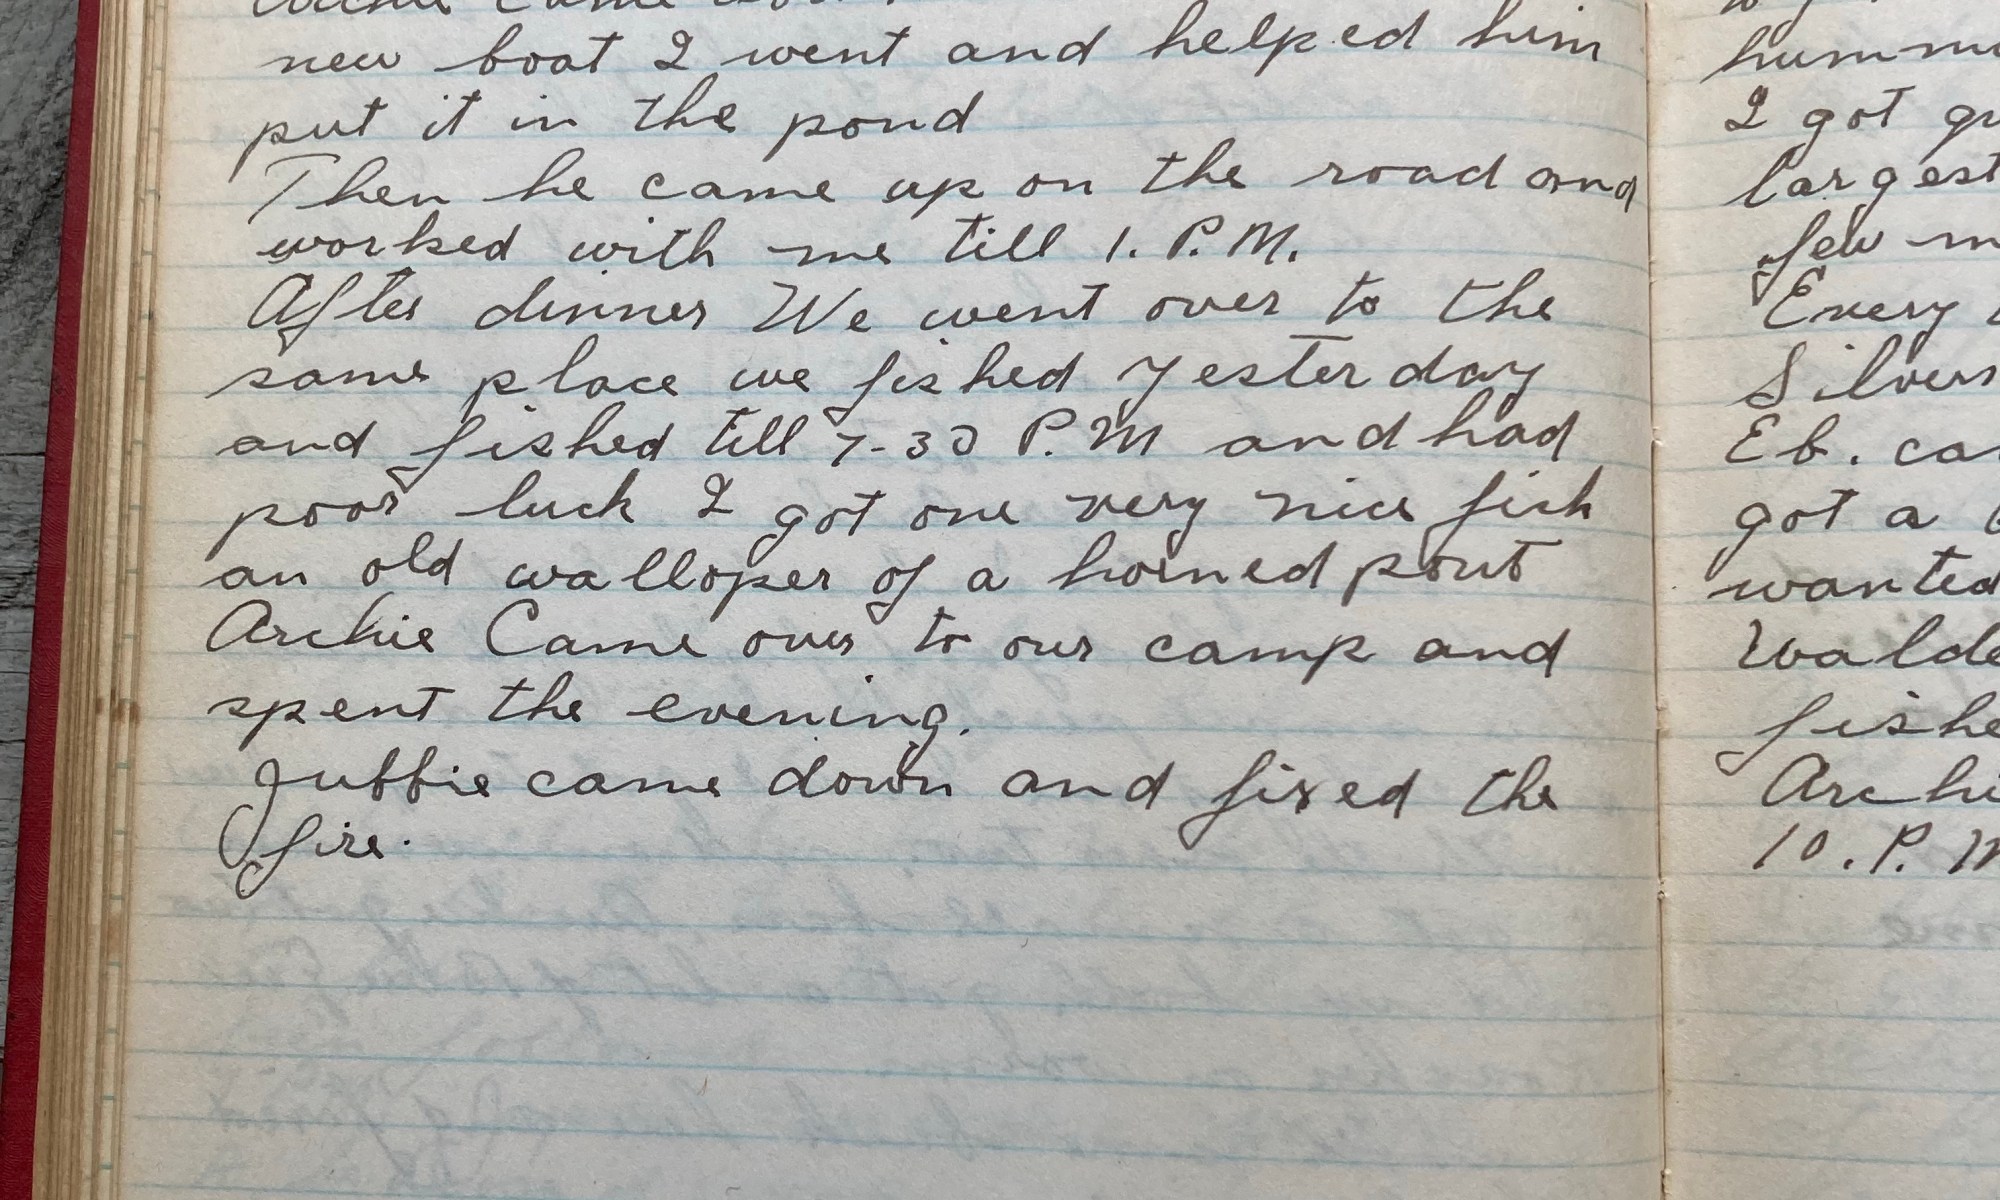 new boat I went and helped him
put it in the pond
Then he came up on the road and
worked with me till 1. P.M.
After dinner We went over to the
same place we fished yesterday
and fished till 7-30 P.M and had
poor luck I got one very nice fish
an old walloper of a horned pout
Archie Came over to our camp and
spent the evening.
came down and fixed the
fire.
I got
largest
few
Every
Eb.
got a
wanted
10. P. M